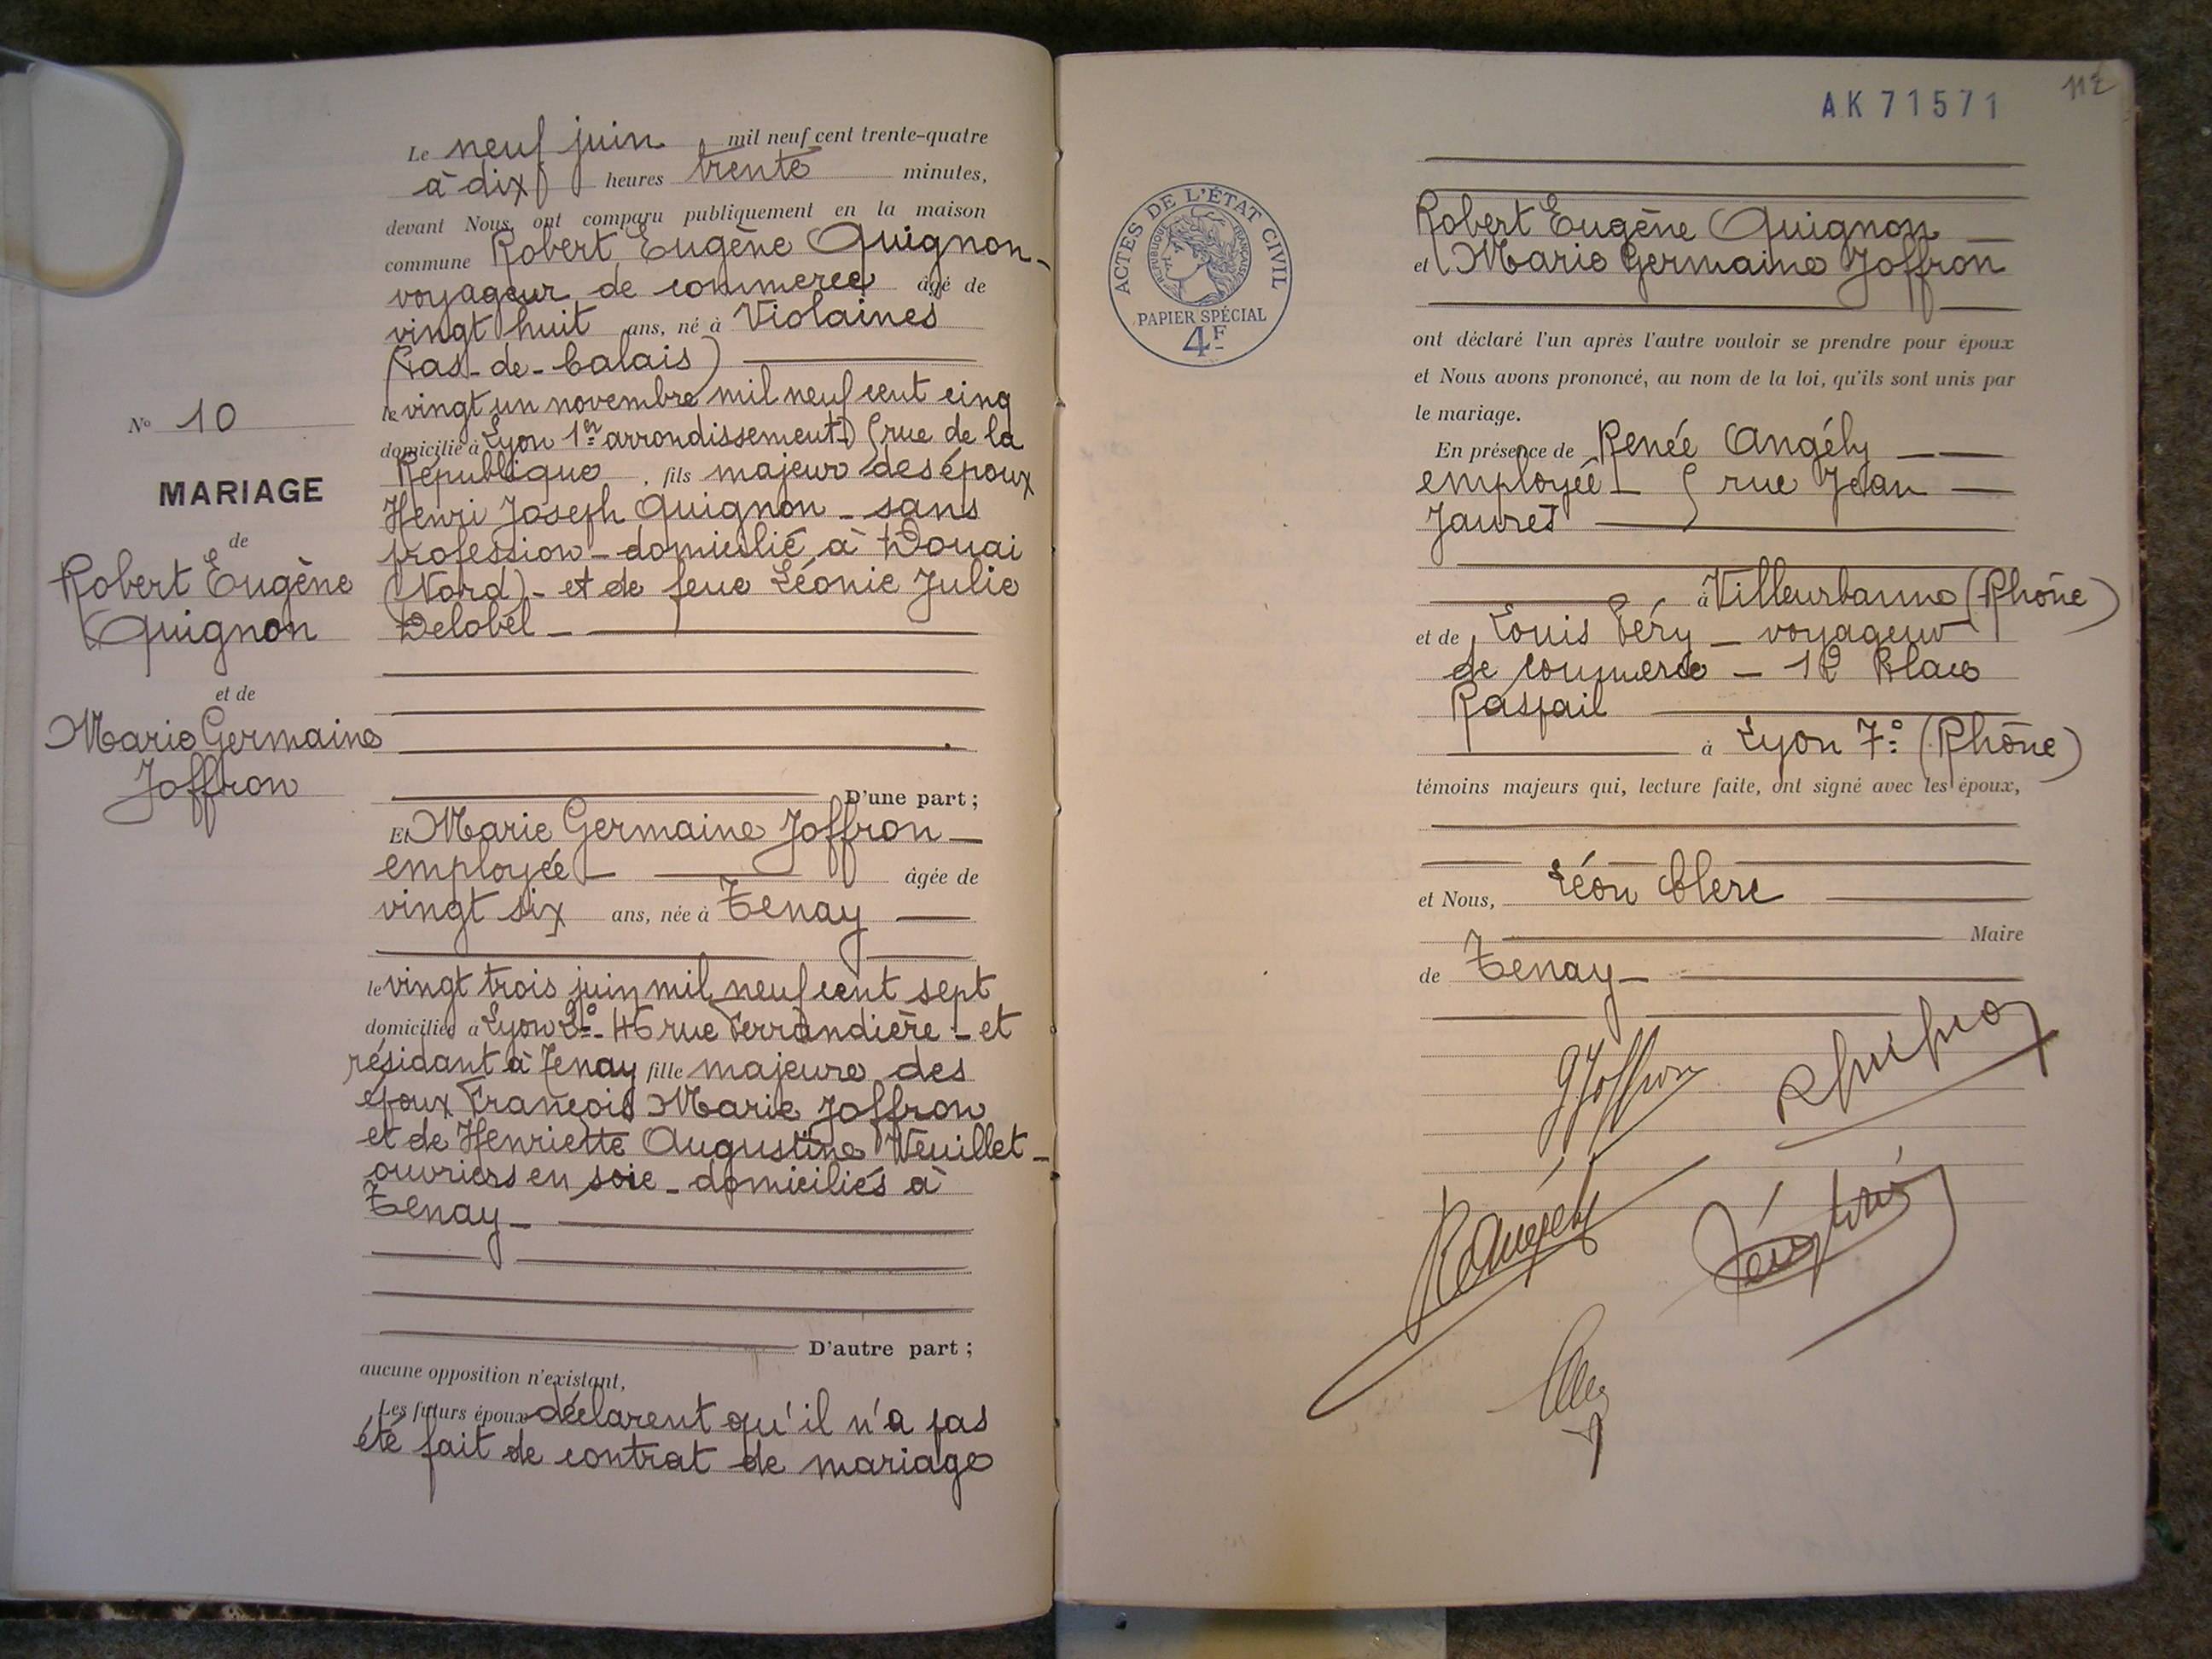 Le neuf juin mil neuf cent trente-quatre
à dix heures trente minutes,
devant Nous, ont comparu publiquement en la maison
commune Robert Eugène Quignon -
voyageur de commerce âgé de
vingt huit ans, né à Violaines
(Pas-de-Calais)
le vingt un novembre mil neuf cent cinq
domicilié à Lyon 1er arrondissement) 5 rue de la
République . fils majeur des époux
Henri Joseph Quignon - sans
profession - domicilié à Douai
(Nord) - et de feue Léonie Julie
Delobel -
D'une part ;
Et Marie Germaine Joffron -
employée -
âgée de
vingt six ans, née à Tenay
le vingt trois juin mil neuf cent sept
domiciliée à Lyon 2e - 46 rue Ferrandière - et
résidant à Tenay fille majeure des
époux François Marie Joffron
et de Henriette Augustine Veuillet -
ouvriers en soie - domiciliés à
Tenay -
D'autre part ;
aucune opposition n'existant,
Les futurs époux déclarent qu'il n'a pas
été fait de contrat de mariage
No 10
MARIAGE
de
Robert Eugène
Quignon
et de
Marie Germaine
Joffron
AK 71571
112
ACTES DE L'ÉTAT CIVIL
RÉPUBLIQUE FRANÇAISE
PAPIER SPÉCIAL
4F
Robert Eugène Quignon
et Marie Germaine Joffron
ont déclaré l'un après l'autre vouloir se prendre pour époux
et Nous avons prononcé, au nom de la loi, qu'ils sont unis par
le mariage.
En présence de Renée Angély
employée - 5 rue Jean
Jaurès
à Villeurbanne (Rhône)
et de Louis Péry - voyageur
de commerce - 12 Place
Raspail
à Lyon 7e (Rhône)
témoins majeurs qui, lecture faite, ont signé avec les époux,
et Nous, Léon Clerc
Maire
de Tenay -
G Joffron
R Quignon
R Angély